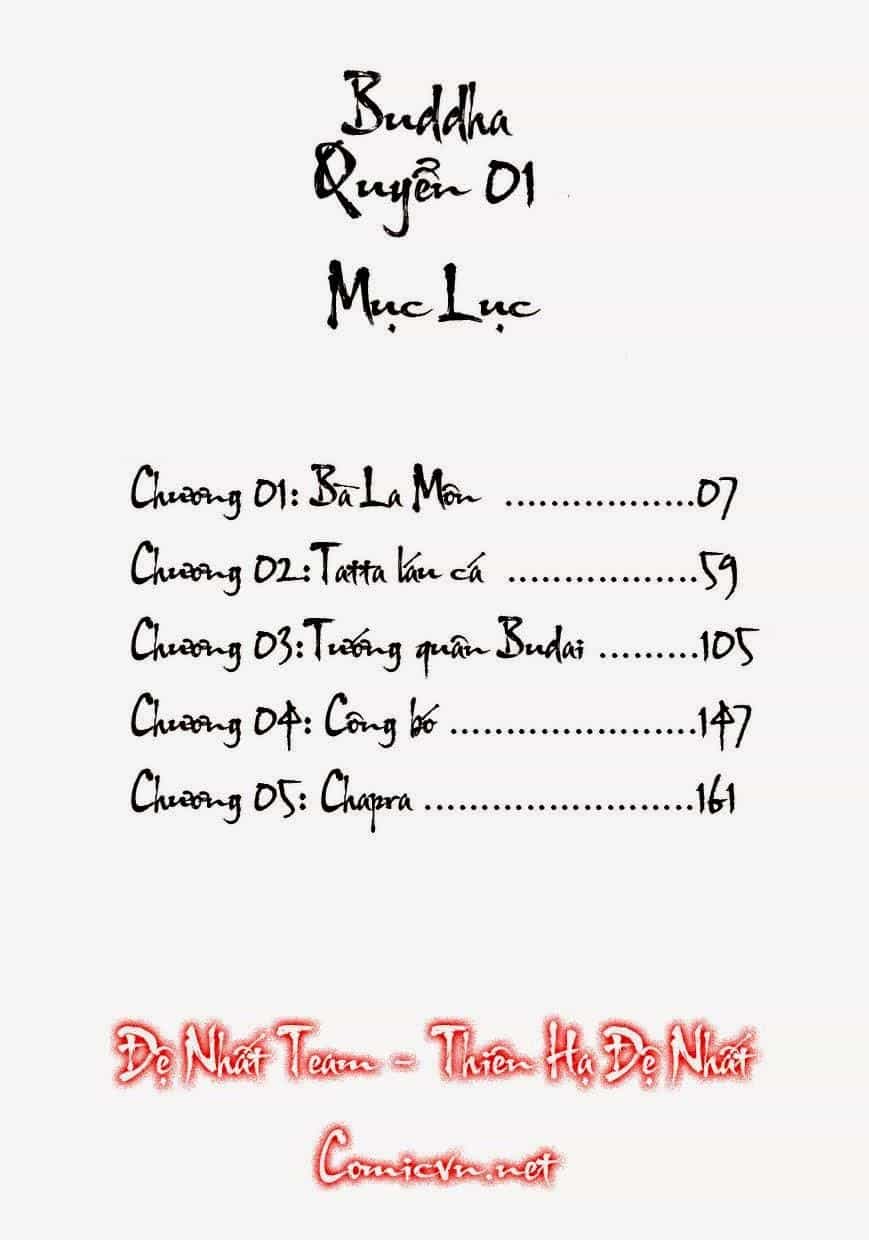 Buddha
Quyển 01
Mục Lục
Chương 01: Bà La Môn ..................07
Chương 02: Tatta láu cá ..................59
Chương 03: Tướng quân Budai .........105
Chương 04: Công bố .......................147
Chương 05: Chapra .........................161
Đệ Nhất Team - Thiên Hạ Đệ Nhất
Comicvn.net